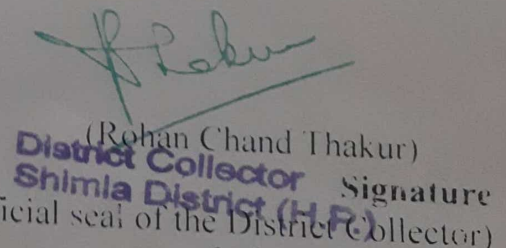 Thakur
(Rohan Chand Thakur)
District Collector
Signature
Shimla District (H.P.)
icial seal of the District Collector)